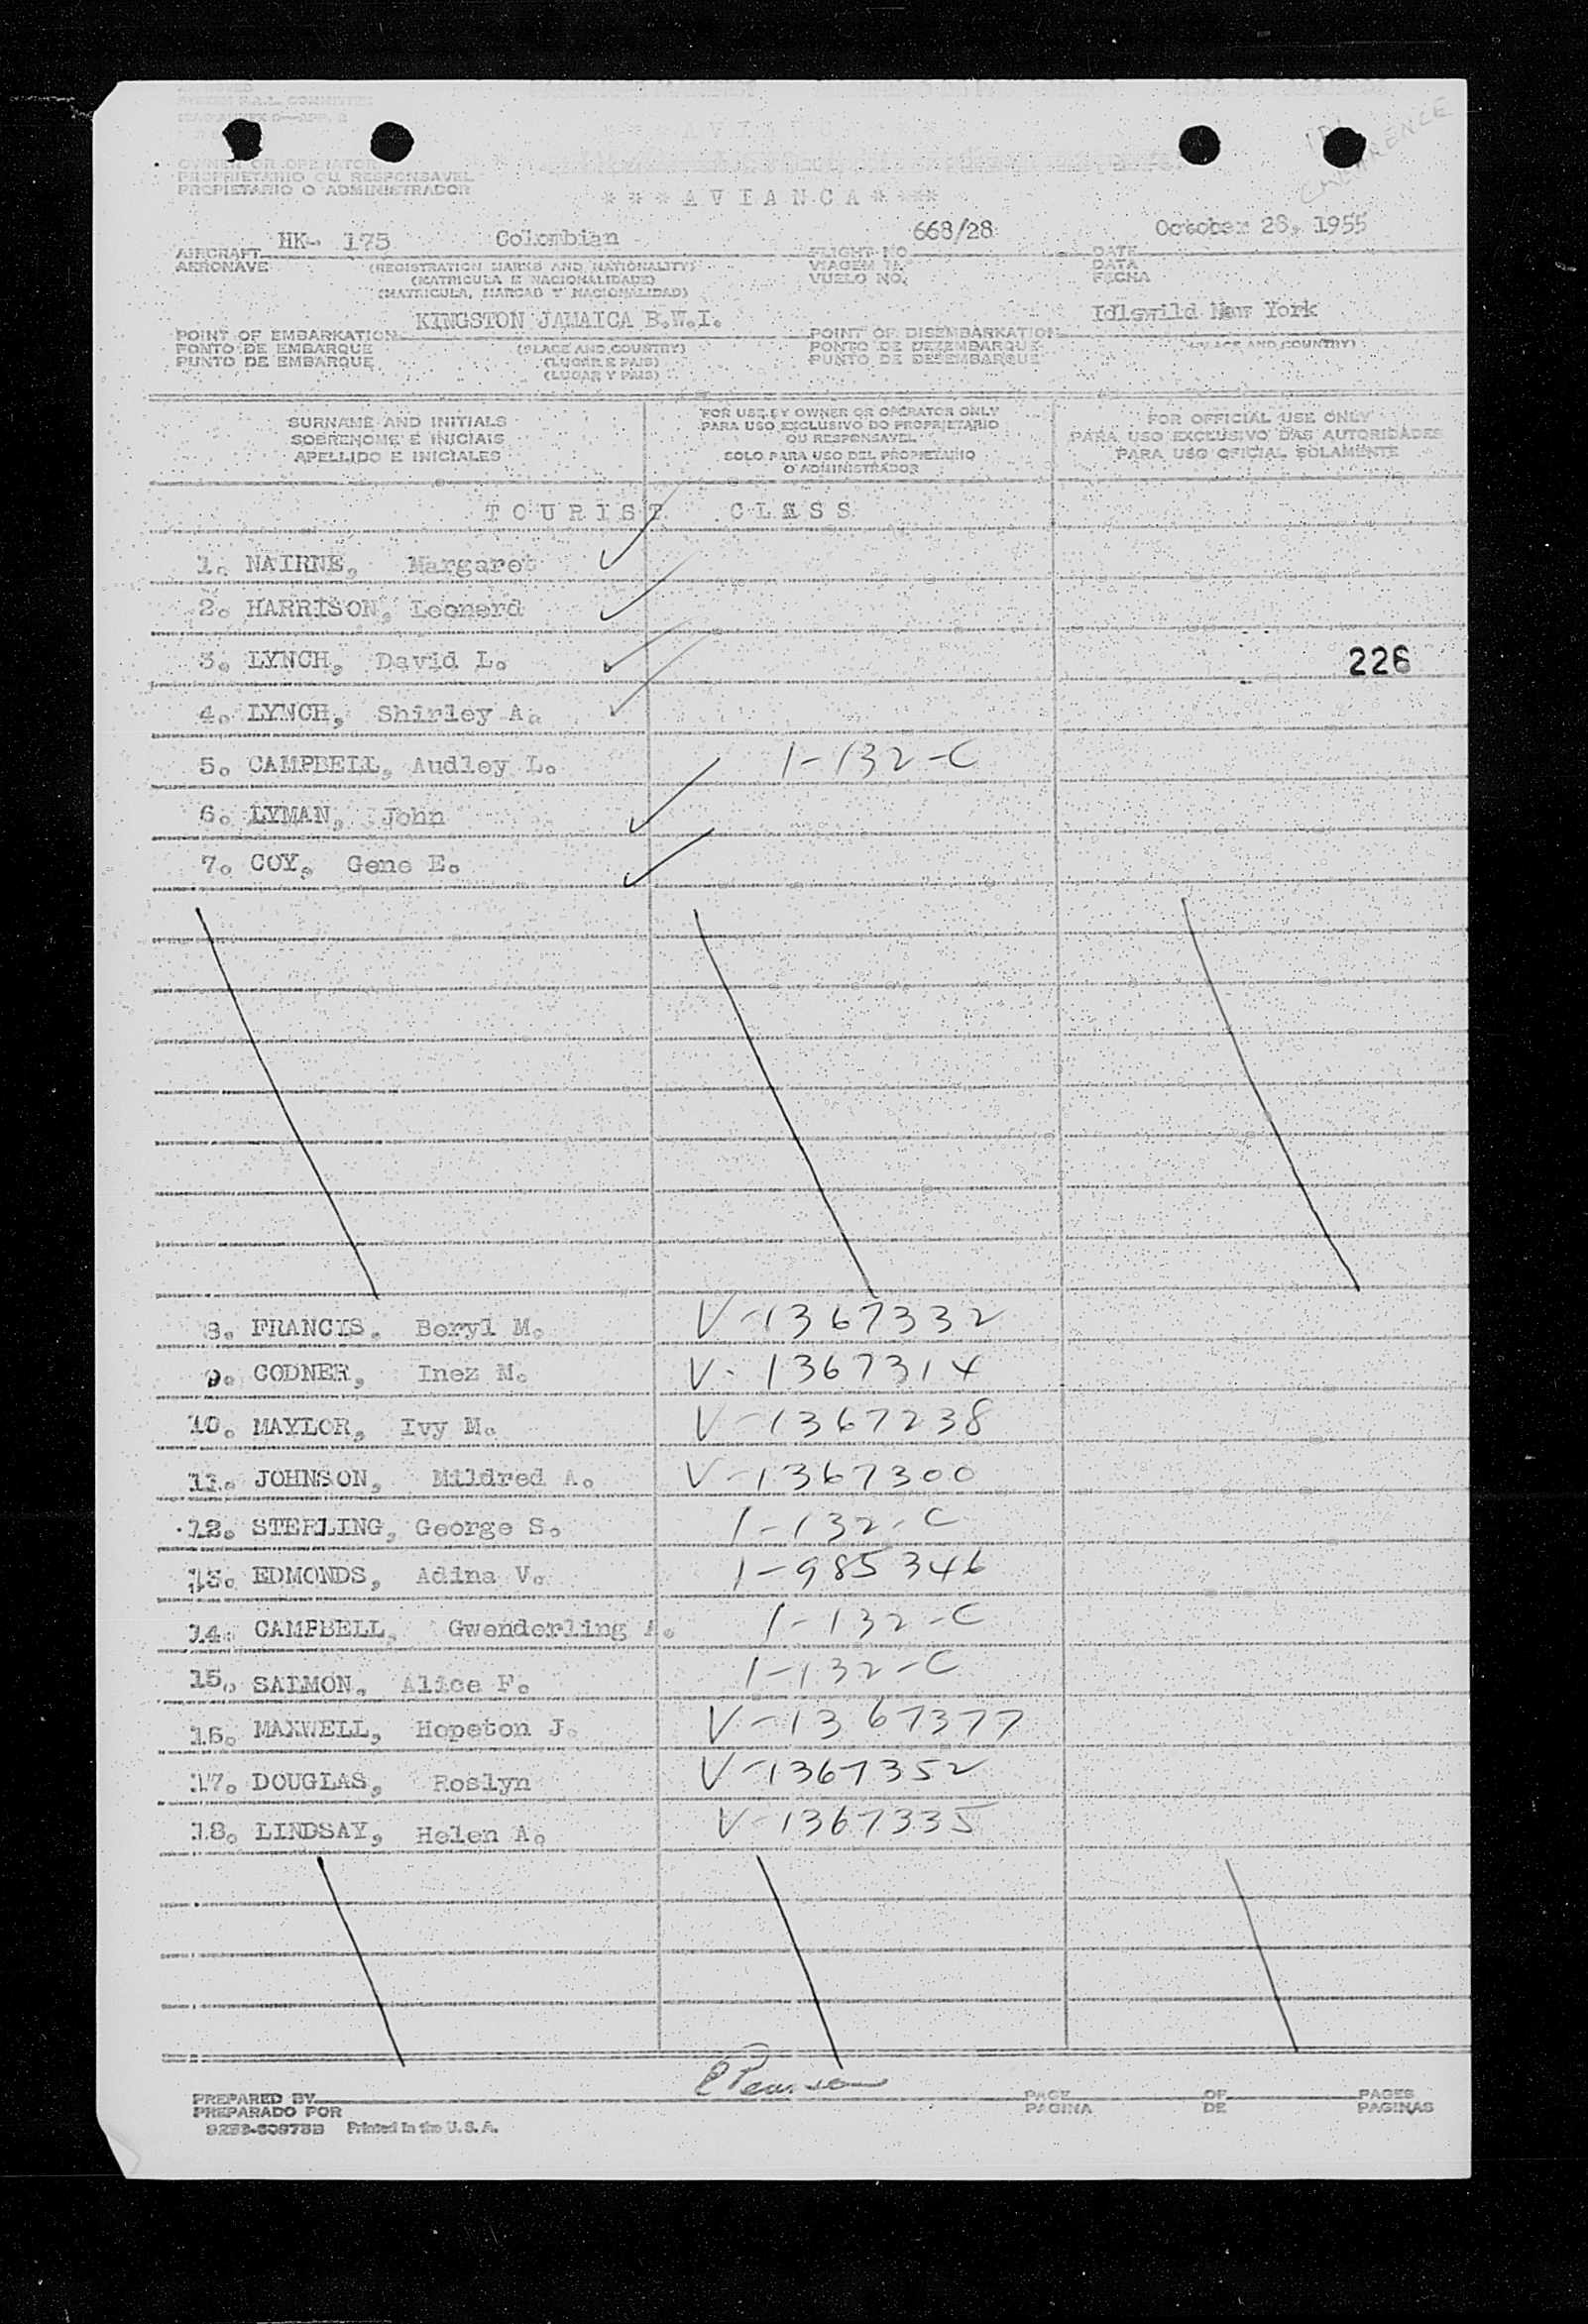 OWNER OR OPERATOR
PROPRIETARIO OU RESPONSAVEL
PROPIETARIO O ADMINISTRADOR
* * * A V I A N C A * * * *
AIRCRAFT HK- 175 Colombian FLIGHT NO. 668/28 DATE October 28, 1955
AERONAVE (REGISTRATION MARKS AND NATIONALITY) VIAGEM N. DATA
(MATRICULA E NACIONALIDADE) VUELO NO. FECHA
(MATRICULA, MARCAS Y NACIONALIDAD)
POINT OF EMBARKATION KINGSTON JAMAICA B.W.I. POINT OF DISEMBARKATION Idlewild New York
PONTO DE EMBARQUE (PLACE AND COUNTRY) PONTO DE DESEMBARQUE (PLACE AND COUNTRY)
PUNTO DE EMBARQUE (LUGAR E PAIS) PUNTO DE DESEMBARQUE
(LUGAR Y PAIS)
SURNAME AND INITIALS FOR USE BY OWNER OR OPERATOR ONLY FOR OFFICIAL USE ONLY
SOBRENOME E INICIAIS PARA USO EXCLUSIVO DO PROPRIETARIO OU RESPONSAVEL PARA USO EXCLUSIVO DAS AUTORIDADES
APELLIDO E INICIALES SOLO PARA USO DEL PROPIETARIO O ADMINISTRADOR PARA USO OFICIAL SOLAMENTE
T O U R I S T C L A S S
1. NAIRNE, Margaret
2. HARRISON, Leonard
3. LYNCH, David L. 226
4. LYNCH, Shirley A.
5. CAMPBELL, Audley L. 1-132-C
6. LYMAN, John
7. COY, Gene E.
8. FRANCIS, Beryl M. V-1367332
9. CODNER, Inez M. V-1367314
10. MAYLOR, Ivy M. V-1367238
11. JOHNSON, Mildred A. V-1367300
12. STERLING, George S. 1-132-C
13. EDMONDS, Adina V. 1-985346
14. CAMPBELL, Gwenderling A. 1-132-C
15. SALMON, Alice F. 1-132-C
16. MAXWELL, Hopeton J. V-1367377
17. DOUGLAS, Roslyn V-1367352
18. LINDSAY, Helen A. V-1367335
PREPARED BY PAGE OF PAGES
PREPARADO POR PAGINA DE PAGINAS
Printed in the U. S. A.